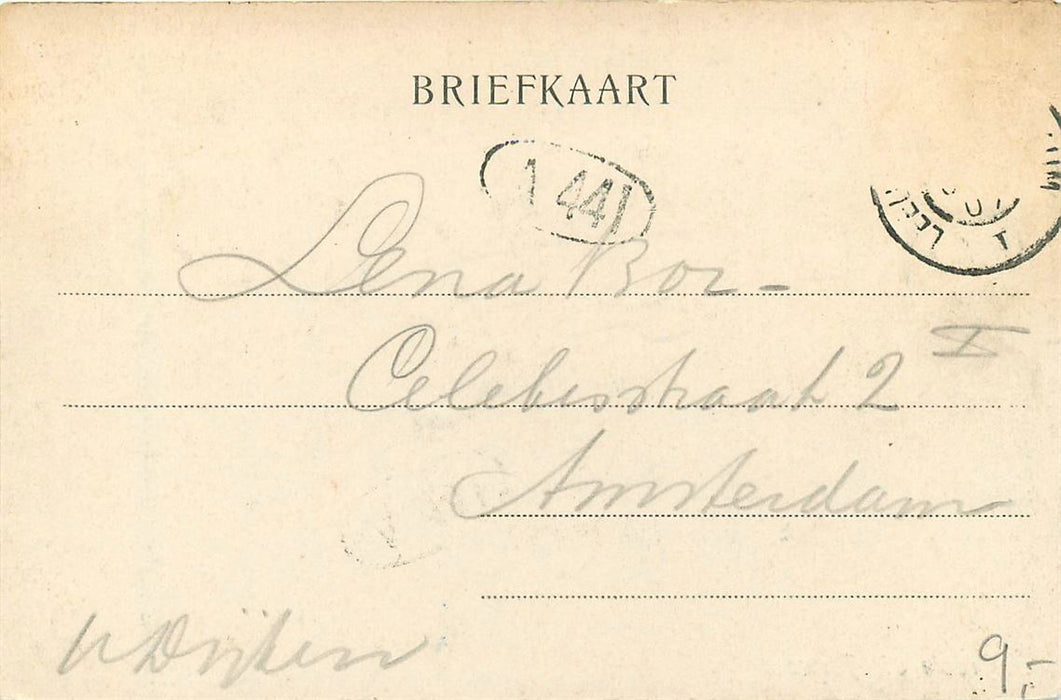 BRIEFKAART
1 44
Lena Bor -
Celebesstraat 2 I
Amsterdam
v Dijken
9,-